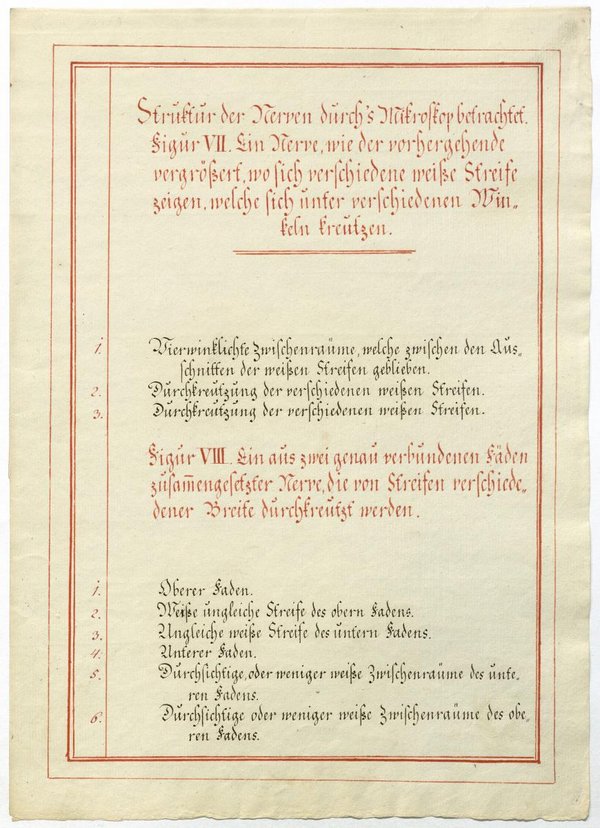 Struktur der Nerven durch's Mikroskop betrachtet.
Figur VII. Ein Nerve, wie der vorhergehende
vergrößert, wo sich verschiedene weiße Streife
zeigen, welche sich unter verschiedenen Win„
keln kreutzen.
1. Vierwinklichte Zwischenräume, welche zwischen den Aus„
schnitten der weißen Streifen geblieben.
2. Durchkreutzung der verschiedenen weißen Streifen.
3. Durchkreutzung der verschiedenen weißen Streifen.
Figur VIII. Ein aus zwei genau verbundenen Fäden
zusam̅engesetzter Nerve, die von Streifen verschiede„
dener Breite durchkreutzt werden.
1. Oberer Faden.
2. Weiße ungleiche Streife des obern Fadens.
3. Ungleiche weiße Streife des untern Fadens.
4. Unterer Faden.
5. Durchsichtige, oder weniger weiße Zwischenräume des unte„
ren Fadens.
6. Durchsichtige oder weniger weiße Zwischenräume des obe„
ren Fadens.